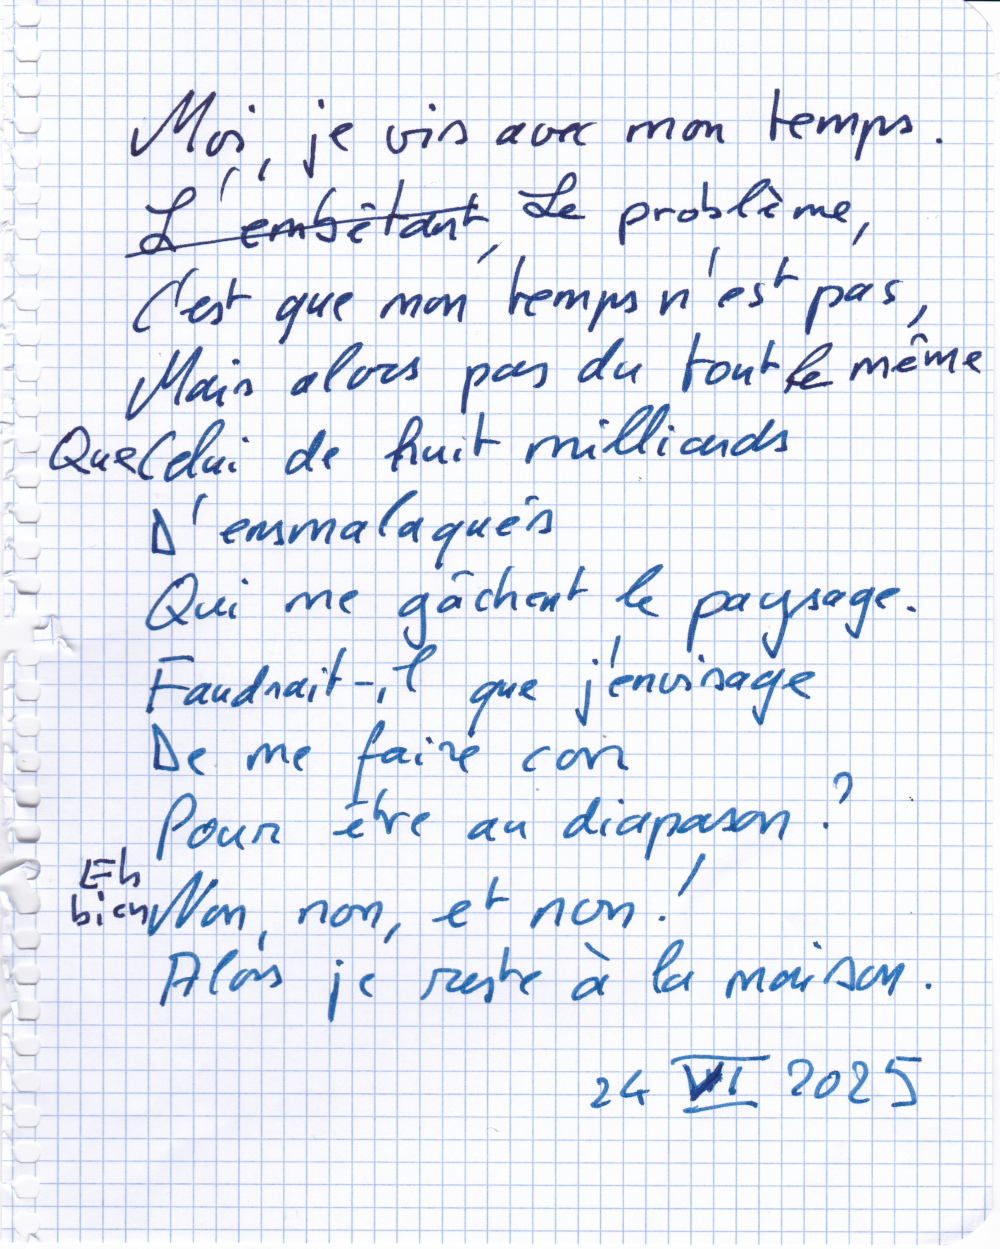 Moi, je vis avec mon temps.
L'embêtant, Le problème,
C'est que mon temps n'est pas,
Mais alors pas du tout le même
Que Celui de huit milliards
D'ensmalaqués
Qui me gâchent le paysage.
Faudrait-il que j'envisage
De me faire con
Pour être au diapason ?
Eh bien Non, non, et non !
Alors je reste à la maison.
24 VI 2025